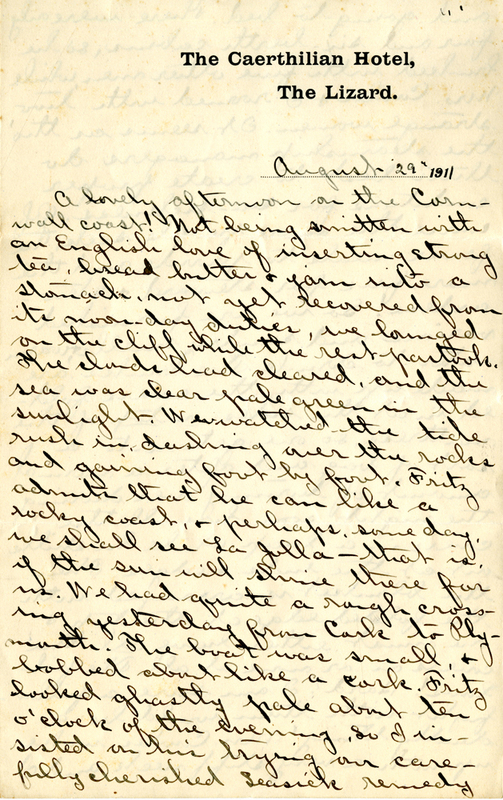 The Caerthilian Hotel,
The Lizard.
August 29" 1911
A lovely afternoon on the Corn-
wall coast! Not being smitten with
an English love of inserting strong
tea, bread butter & jam into a
stomach, not yet recovered from
its noon-day duties, we lounged
on the cliff while the rest partook.
The clouds had cleared, and the
sea was clear pale green in the
sunlight. We watched the tide
rush in, dashing over the rocks
and gaining foot by foot. Fritz
admits that he can like a
rocky coast, & perhaps, some day,
we shall see La Jolla - that is,
if the sun will shine there for
us. We had quite a rough cross-
ing yesterday from Cork to Ply-
mouth. The boat was small, &
bobbed about like a cork. Fritz
looked ghastly pale about ten
o'clock of the evening, so I in-
sisted on his trying our care-
fully cherished seasick remedy